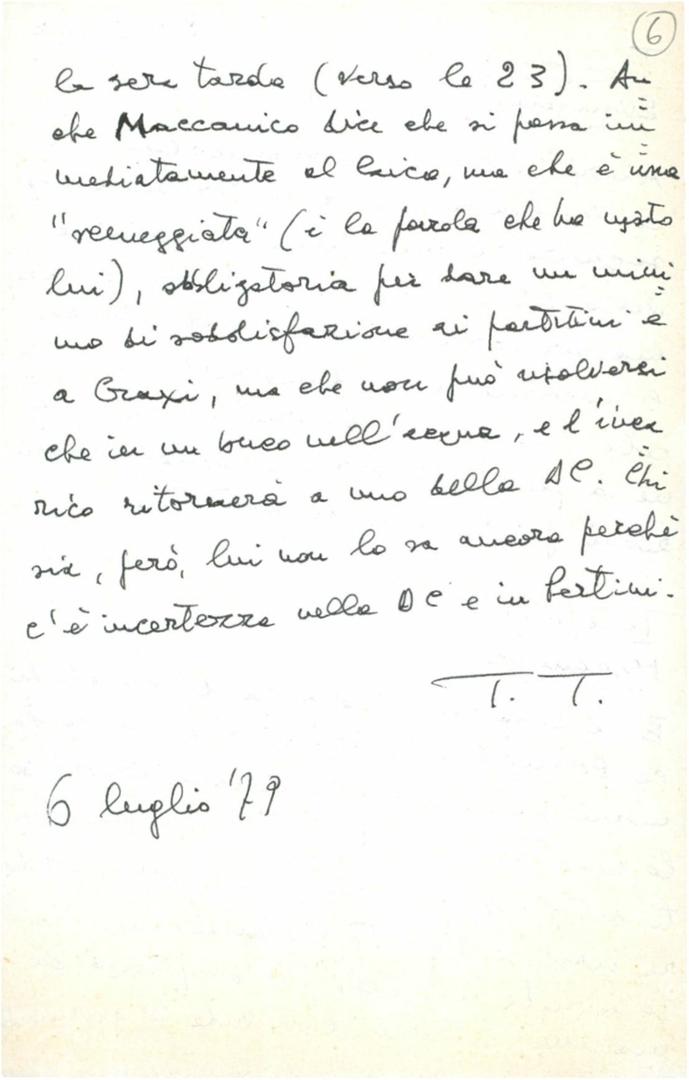 6
la sera tarda (verso le 23). An=
che Maccanico dice che si passa im=
mediatamente al laico, ma che è una
"sceneggiata" (è la parola che ha usato
lui), obbligatoria per dare un mini=
mo di soddisfazione ai partitini e
a Craxi, ma che non può risolversi
che in un buco nell'acqua, e l'inca=
rico ritornerà a uno della DC. Chi
sia, però, lui non lo sa ancora perchè
c'è incertezza nella DC e in Pertini.
T. T.
6 luglio '79